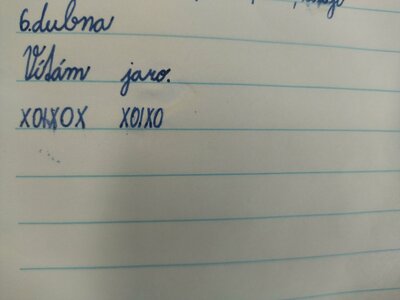 6.dubna
Vítám jaro.
XOIXOX XOIXO